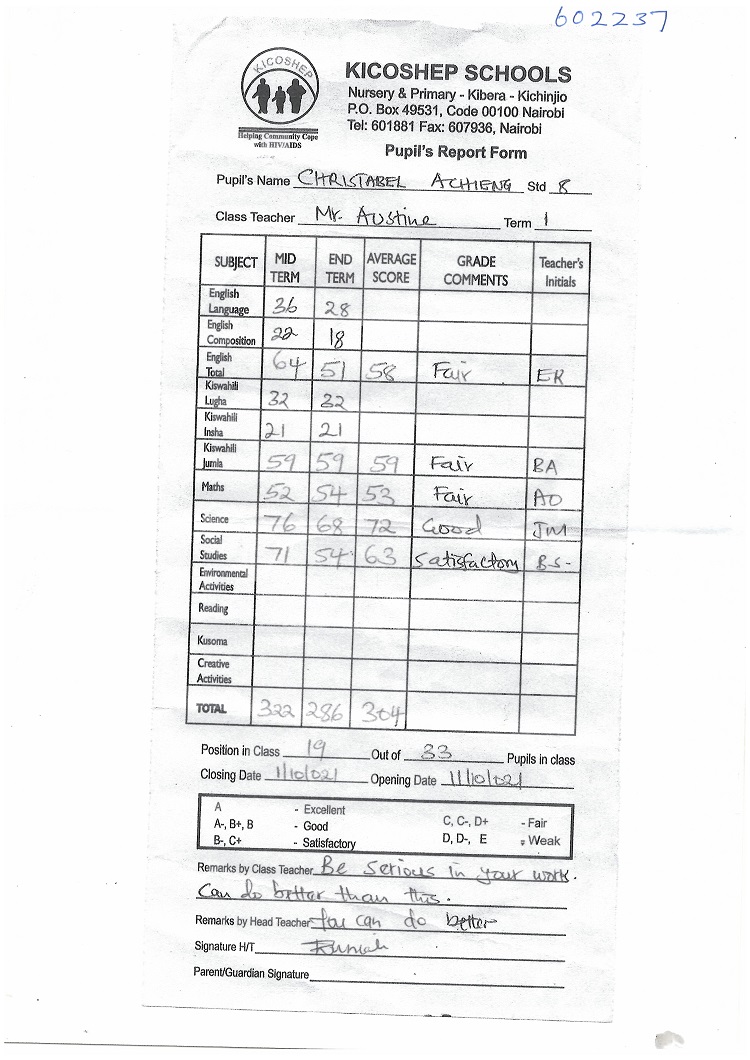 602237
KICOSHEP
KICOSHEP SCHOOLS
Nursery & Primary - Kibera - Kichinjio
P.O. Box 49531, Code 00100 Nairobi
Tel: 601881 Fax: 607936, Nairobi
Helping Community Cope
with HIV/AIDS
Pupil's Report Form
Pupil's Name CHRISTABEL ACHIENG Std 8
Class Teacher Mr. Austine Term 1
SUBJECT MID TERM END TERM AVERAGE SCORE GRADE COMMENTS Teacher's Initials
English Language 36 28
English Composition 22 18
English Total 64 51 58 Fair ER
Kiswahili Lugha 32 32
Kiswahili Insha 21 21
Kiswahili Jumla 59 59 59 Fair BA
Maths 52 54 53 Fair AO
Science 76 68 72 Good JM
Social Studies 71 54 63 Satisfactory B-S-
Environmental Activities
Reading
Kusoma
Creative Activities
TOTAL 322 286 304
Position in Class 19 Out of 33 Pupils in class
Closing Date 1/10/021 Opening Date 11/10/021
A - Excellent C, C-, D+ - Fair
A-, B+, B - Good D, D-, E - Weak
B-, C+ - Satisfactory
Remarks by Class Teacher Be serious in your work.
Can do better than this.
Remarks by Head Teacher You can do better
Signature H/T
Parent/Guardian Signature